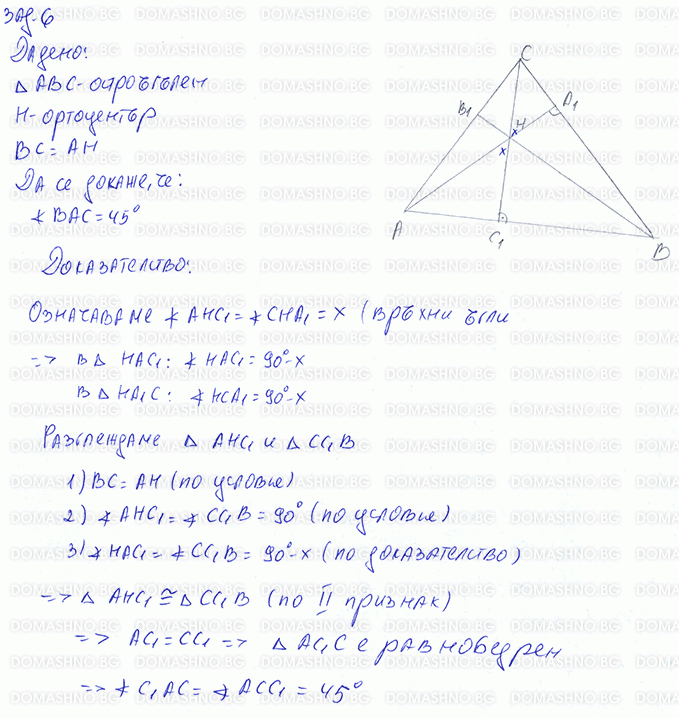 Зад. 6
Дадено:
△ ABC - остроъгълен
H - ортоцентър
BC = AH
Да се докаже, че:
∢ BAC = 45°
C
B₁
A₁
H
x
x
A
C₁
B
Доказателство:
Означаваме ∢ AHC₁ = ∢ CHA₁ = x (връхни ъгли
=> в △ HAC₁: ∢ HAC₁ = 90° - x
в △ HA₁C: ∢ HCA₁ = 90° - x
Разглеждаме △ AHC₁ и △ CC₁B
1) BC = AH (по условие)
2) ∢ AHC₁ = ∢ CC₁B = 90° (по условие)
3) ∢ HAC₁ = ∢ CC₁B = 90° - x (по доказателство)
=> △ AHC₁ ≅ △ CC₁B (по II признак)
=> AC₁ = CC₁ => △ AC₁C е равнобедрен
=> ∢ C₁AC = ∢ ACC₁ = 45°
DOMASHNO.BG